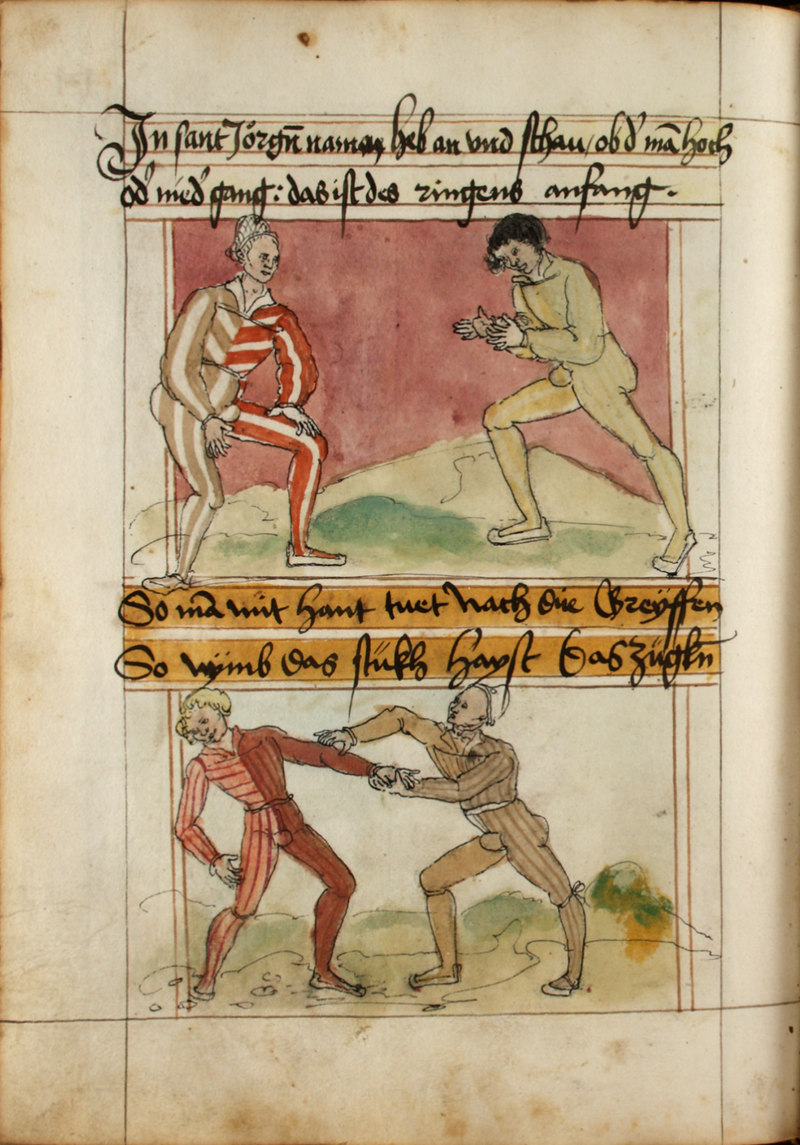 In sant Jörgn̄ namen heb an vnd schau / ob d' mā hoch
od' nied' gang : das ist des ringens anfang .
So mā mit hant tuet Nach die Greyffen
So nymb das stükh Hayst Das Zügkn̄